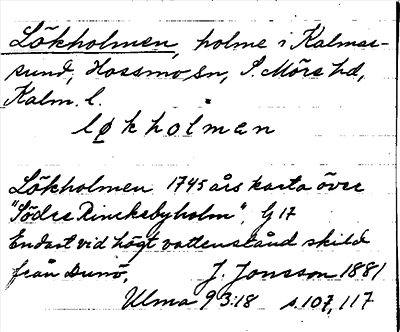 Lökholmen, holme i Kalmar-
sund, Hossmo sn, S. Möre hd,
Kalm. l.
løkholman
Lökholmen 1745 års karta över
"Södra Rinckabyholm", G 17
Endast vid högt vattenstånd skild
från Dunö, J. Jonsson 1881
Ulma 93:18 s. 107, 117